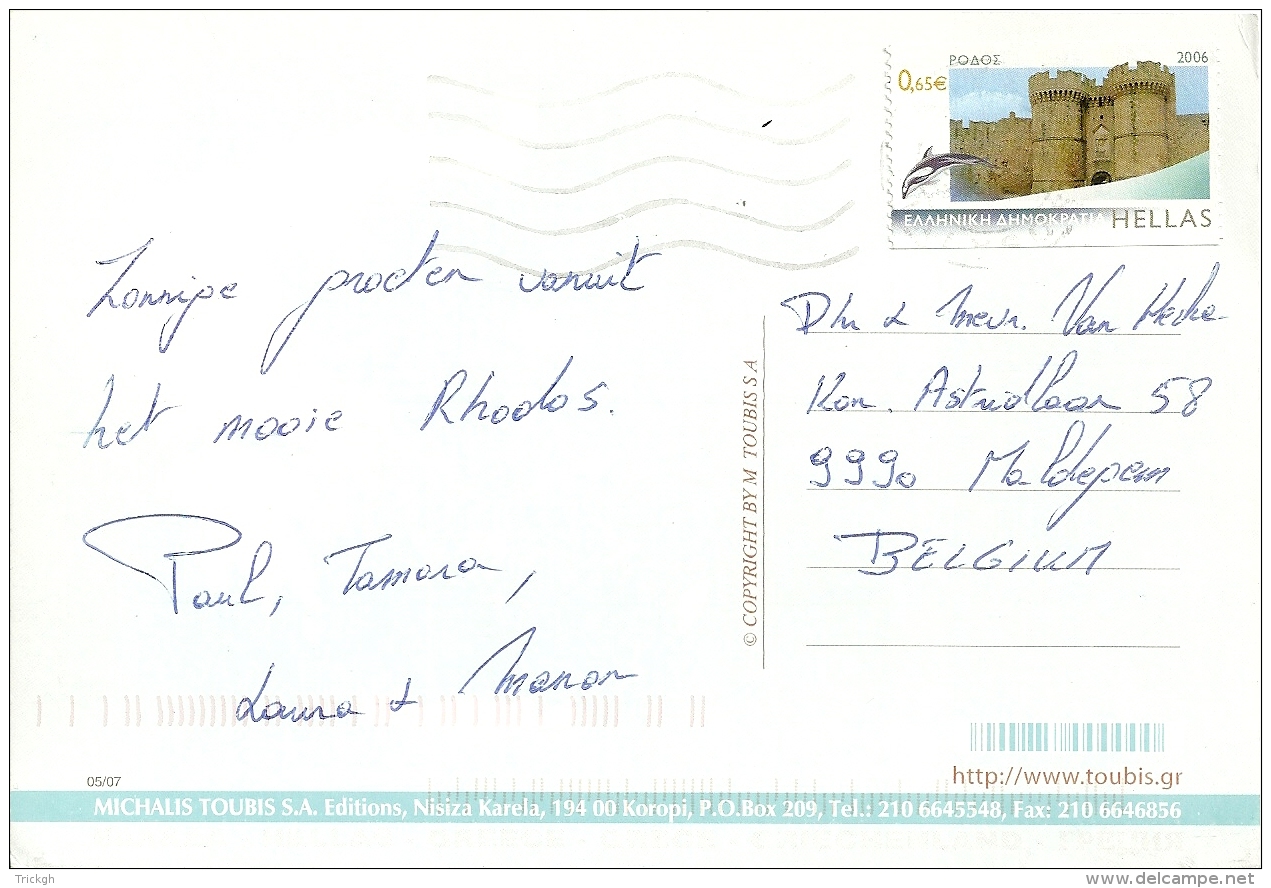 ΡΟΔΟΣ 2006
0,65€
ΕΛΛΗΝΙΚΗ ΔΗΜΟΚΡΑΤΙΑ HELLAS
Zonnige groeten vanuit
het mooie Rhodos.
Paul, Tamara,
Laura & Manon
© COPYRIGHT BY M TOUBIS S.A
Dhr & Mevr. Van
Kon. Astridlaan 58
9990 Maldegem
BELGIUM
http://www.toubis.gr
05/07
MICHALIS TOUBIS S.A. Editions, Nisiza Karela, 194 00 Koropi, P.O.Box 209, Tel.: 210 6645548, Fax: 210 6646856
Trickgh
delcampe.net